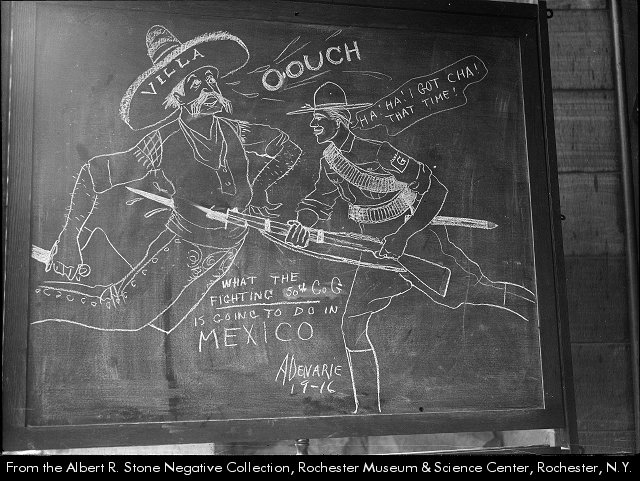 VILLA
OOUCH
HA! HA! I GOT CHA!
THAT TIME!
G
WHAT THE
FIGHTING 50th Co G
IS GOING TO DO IN
MEXICO
ADENARIE
19-16
From the Albert R. Stone Negative Collection, Rochester Museum & Science Center, Rochester, N.Y.